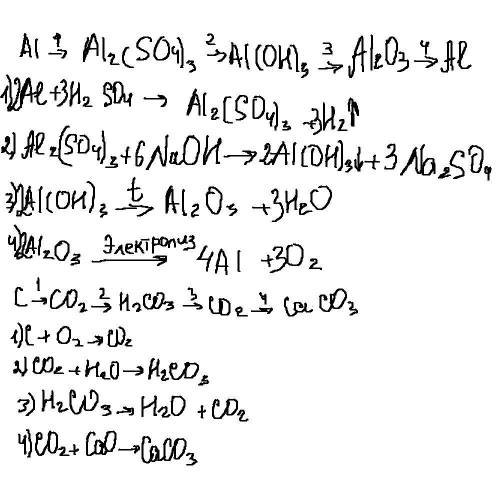 Al →¹ Al₂(SO4)₃ →² Al(OH)₃ →³ Al₂O₃ →⁴ Al
1) 2Al + 3H₂SO4 → Al₂(SO4)₃ + 3H₂↑
2) Al₂(SO4)₃ + 6NaOH → 2Al(OH)₃↓ + 3Na₂SO4
3) 2Al(OH)₃ →ᵗ Al₂O₃ + 3H₂O
4) 2Al₂O₃ Электролиз → 4Al + 3O₂
C →¹ CO₂ →² H₂CO₃ →³ CO₂ →⁴ CaCO₃
1) C + O₂ → CO₂
2) CO₂ + H₂O → H₂CO₃
3) H₂CO₃ → H₂O + CO₂
4) CO₂ + CaO → CaCO₃